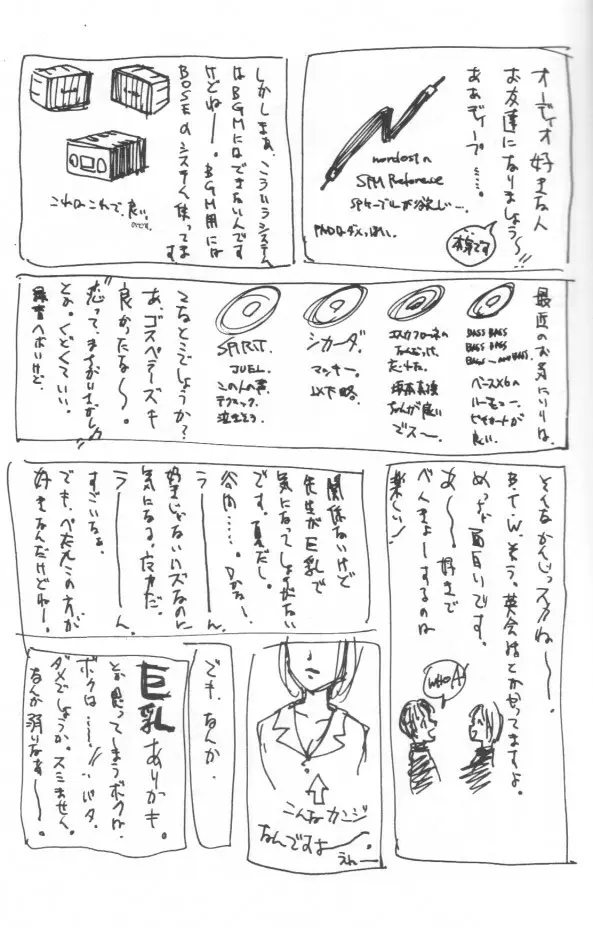 オーディオ好き人
お友達になりましょう〜!!
ああディープ……。
本気です
nordostの
SPM Reference
SPケーブルが欲しい…。
しかしまぁ、こういうシステム
はBGMにはできないんです
けどねー。BGM用には
BOSEのシステム使ってま
す
これはこれで、良い。
最近のお気にいりは、
BASS BASS
BASS BASS
ベース×6の
ハーモニー。
良い。
坂本真綾
ちゃんが良い
でスー。
シカーダ。
マッキー。
以下略
SPIRIT.
JUEL.
この人の声、
テクニック、
泣きそう。
こなとこでしょうか?
あ、ゴスペラーズも
良かったな〜。
とか。くどくていい。
そんなかんじっスかねー。
B.T.W.そう。英会話とかやってますよ。
めっちゃ面白いです。
あ〜〜。好きで
べんきょーするのは
楽しい!
WHOA!
関係ないけど
先生が巨乳で
気になってしょうがない
です。
好きじゃないハズなのに
気になる。
う———ん。
すごいなぁ。
でも、ぺたんこの方が
好きなんだけどねー。
こんなカンジ
なんですよ〜。
でも、なんか、
巨乳ありがも。
とか思ってしまうボクは、
ボクは……!!
ダメでしょうか。スミません。
なんか弱りなぁ〜〜。